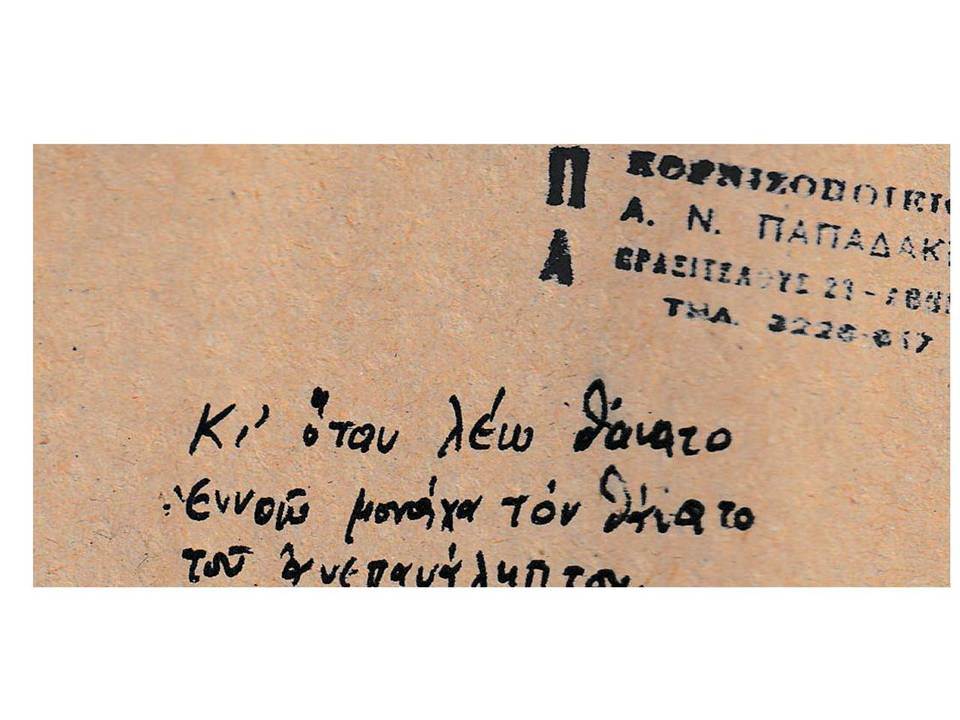 Π ΚΟΡΝΙΖΟΠΟΙΕΙ
Α. Ν. ΠΑΠΑΔΑΚ
Α ΠΡΑΞΙΤΕΛΟΥΣ 21 -
ΤΗΛ.
Κι' ὅταν λέω θάνατο
Ἐννοῶ μονάχα τόν θάνατο
τοῦ ἀνεπανάληπτου